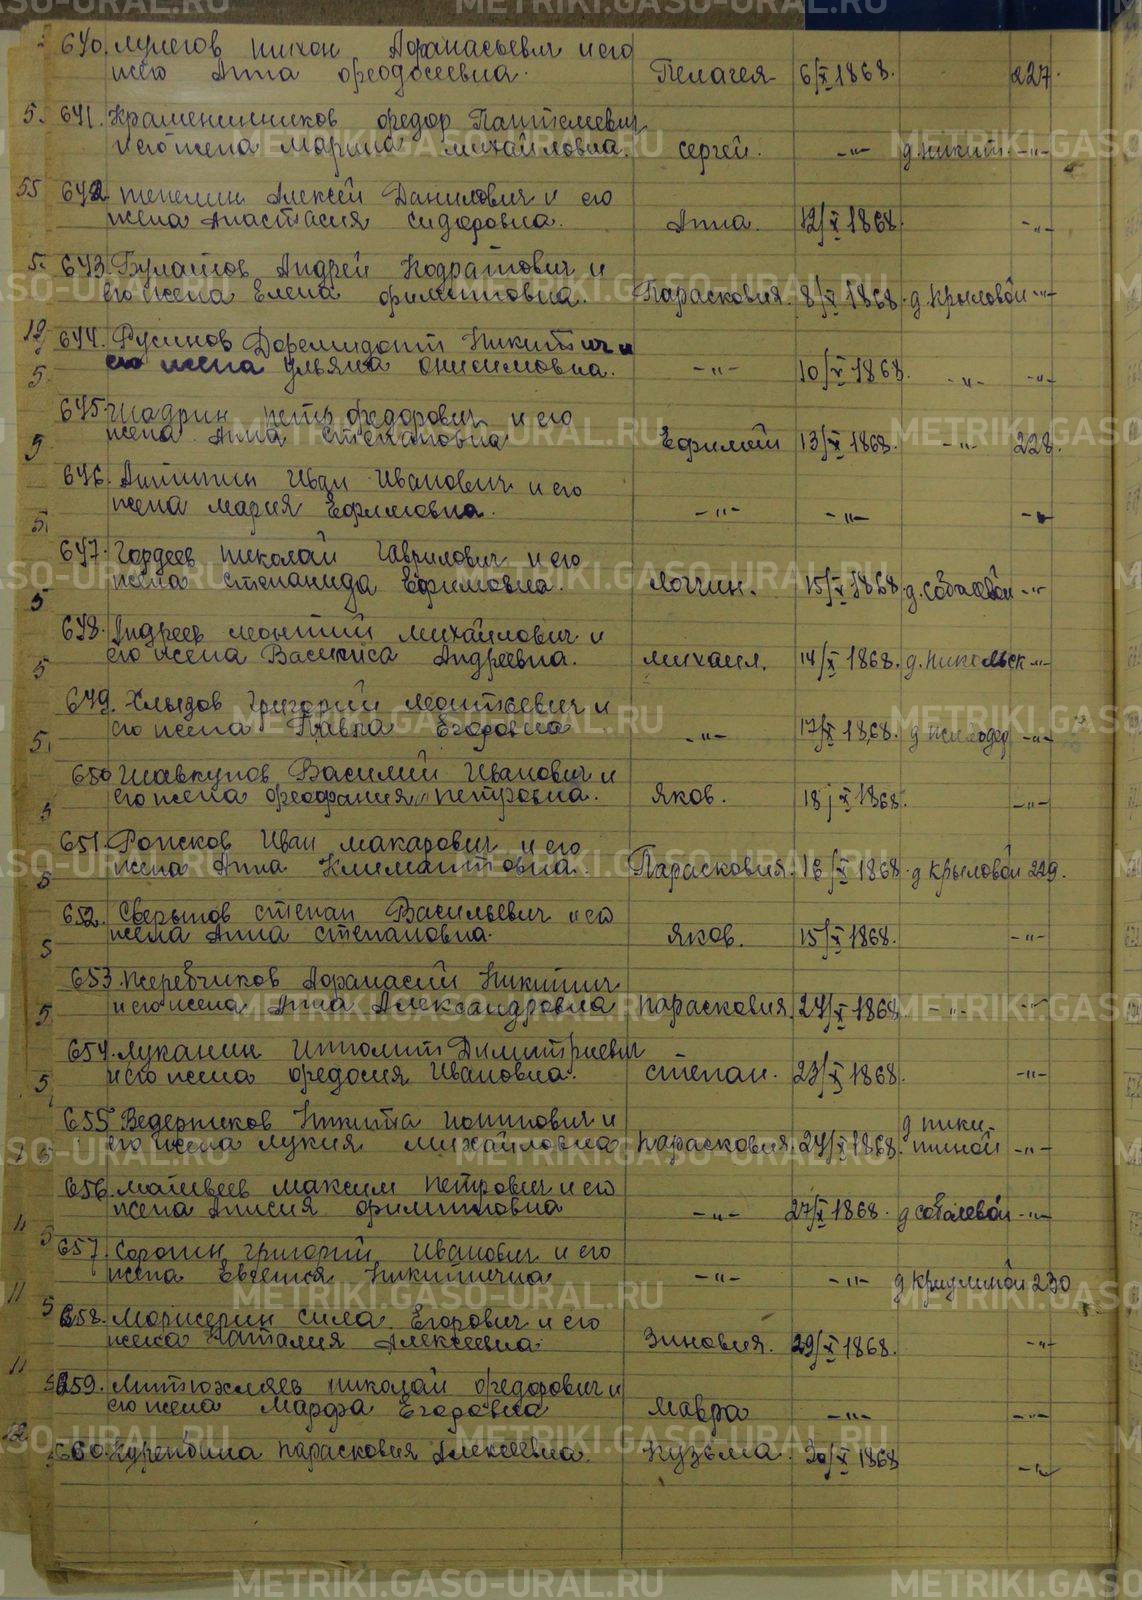 640. Лулегов Тихон Афанасьевич и его
жена Анна Феодосеевна. Пелагея 6/X 1868. 227.
5. 641. Краменинников Федор Пантелеевич
и его жена Марина Михайловна. Сергей. -"- д. Никит. -"-
55 642. Тепелин Алексей Данилович и его
жена Анастасия Сидоровна. Анна. 12/X 1868. -"-
5. 643. Булатов Андрей Кодратович и
его жена Елена Филипповна. Парасковия. 8/X 1868. д. Крыловой -"-
19 644. Русинов Доремидонт Никитич и
5. его жена Ульяна Онисимовна. -"- 10/X 1868. -"- -"-
645. Шадрин Петр Федорович и его
5 жена Анна Степановна Ефимий 13/X 1868. -"- 228.
646. Антипин Иван Иванович и его
5. жена Мария Ефимовна. -"- -"- -"-
647. Гордеев Николай Гаврилович и его
5 жена Степанида Ефимовна. Логгин. 15/X 1868. д. Соболевой -"-
648. Андреев Леонтий Михайлович и
5 его жена Василиса Андреевна. Михаил. 14/X 1868. д. Никольск -"-
649. Хлыздов Григорий Леонтьевич и
5. его жена Павла Егоровна -"- 17/X 1868. д -"-
650 Шавкунов Василий Иванович и
5 его жена Феофания Петровна. Яков. 18/X 1868. -"-
651. Ронсков Иван Макарович и его
5 жена Анна Климантовна. Парасковия. 16/X 1868. д Крыловой 229.
652. Сверыпов Степан Васильевич и его
5 жена Анна Степановна. Яков. 15/X 1868. -"-
653. Жеребчиков Афанасий Никитич
5 и его жена Анна Александровна Парасковия. 24/X 1868 -"- -"-
654. Луканин Ипполит Димитриевич
5 и его жена Федосия Ивановна. Степан. 23/X 1868. -"-
655 Ведерников Никита Иопипович и д Ники-
5 его жена Лукия Михайловна Парасковия. 24/X 1868. тиной -"-
656. Матвеев Максим Петрович и его
11 5 жена Анисия Филипповна -"- 27/X 1868. д Соболевой -"-
657. Соропин Григорий Иванович и его
11 5 жена Евгения Никитична -"- -"- д Криулиной 230
658. Морисерин Сила Егорович и его
11 жена Наталия Алексеевна. Зиновия. 29/X 1868. -"-
659. Митюхляев Николай Федорович и
его жена Марфа Егоровна Мавра -"- -"-
12 660. Курепдина Парасковия Алексеевна. Кузьма. 30/X 1868 -"-
METRIKI.GASO-URAL.RU